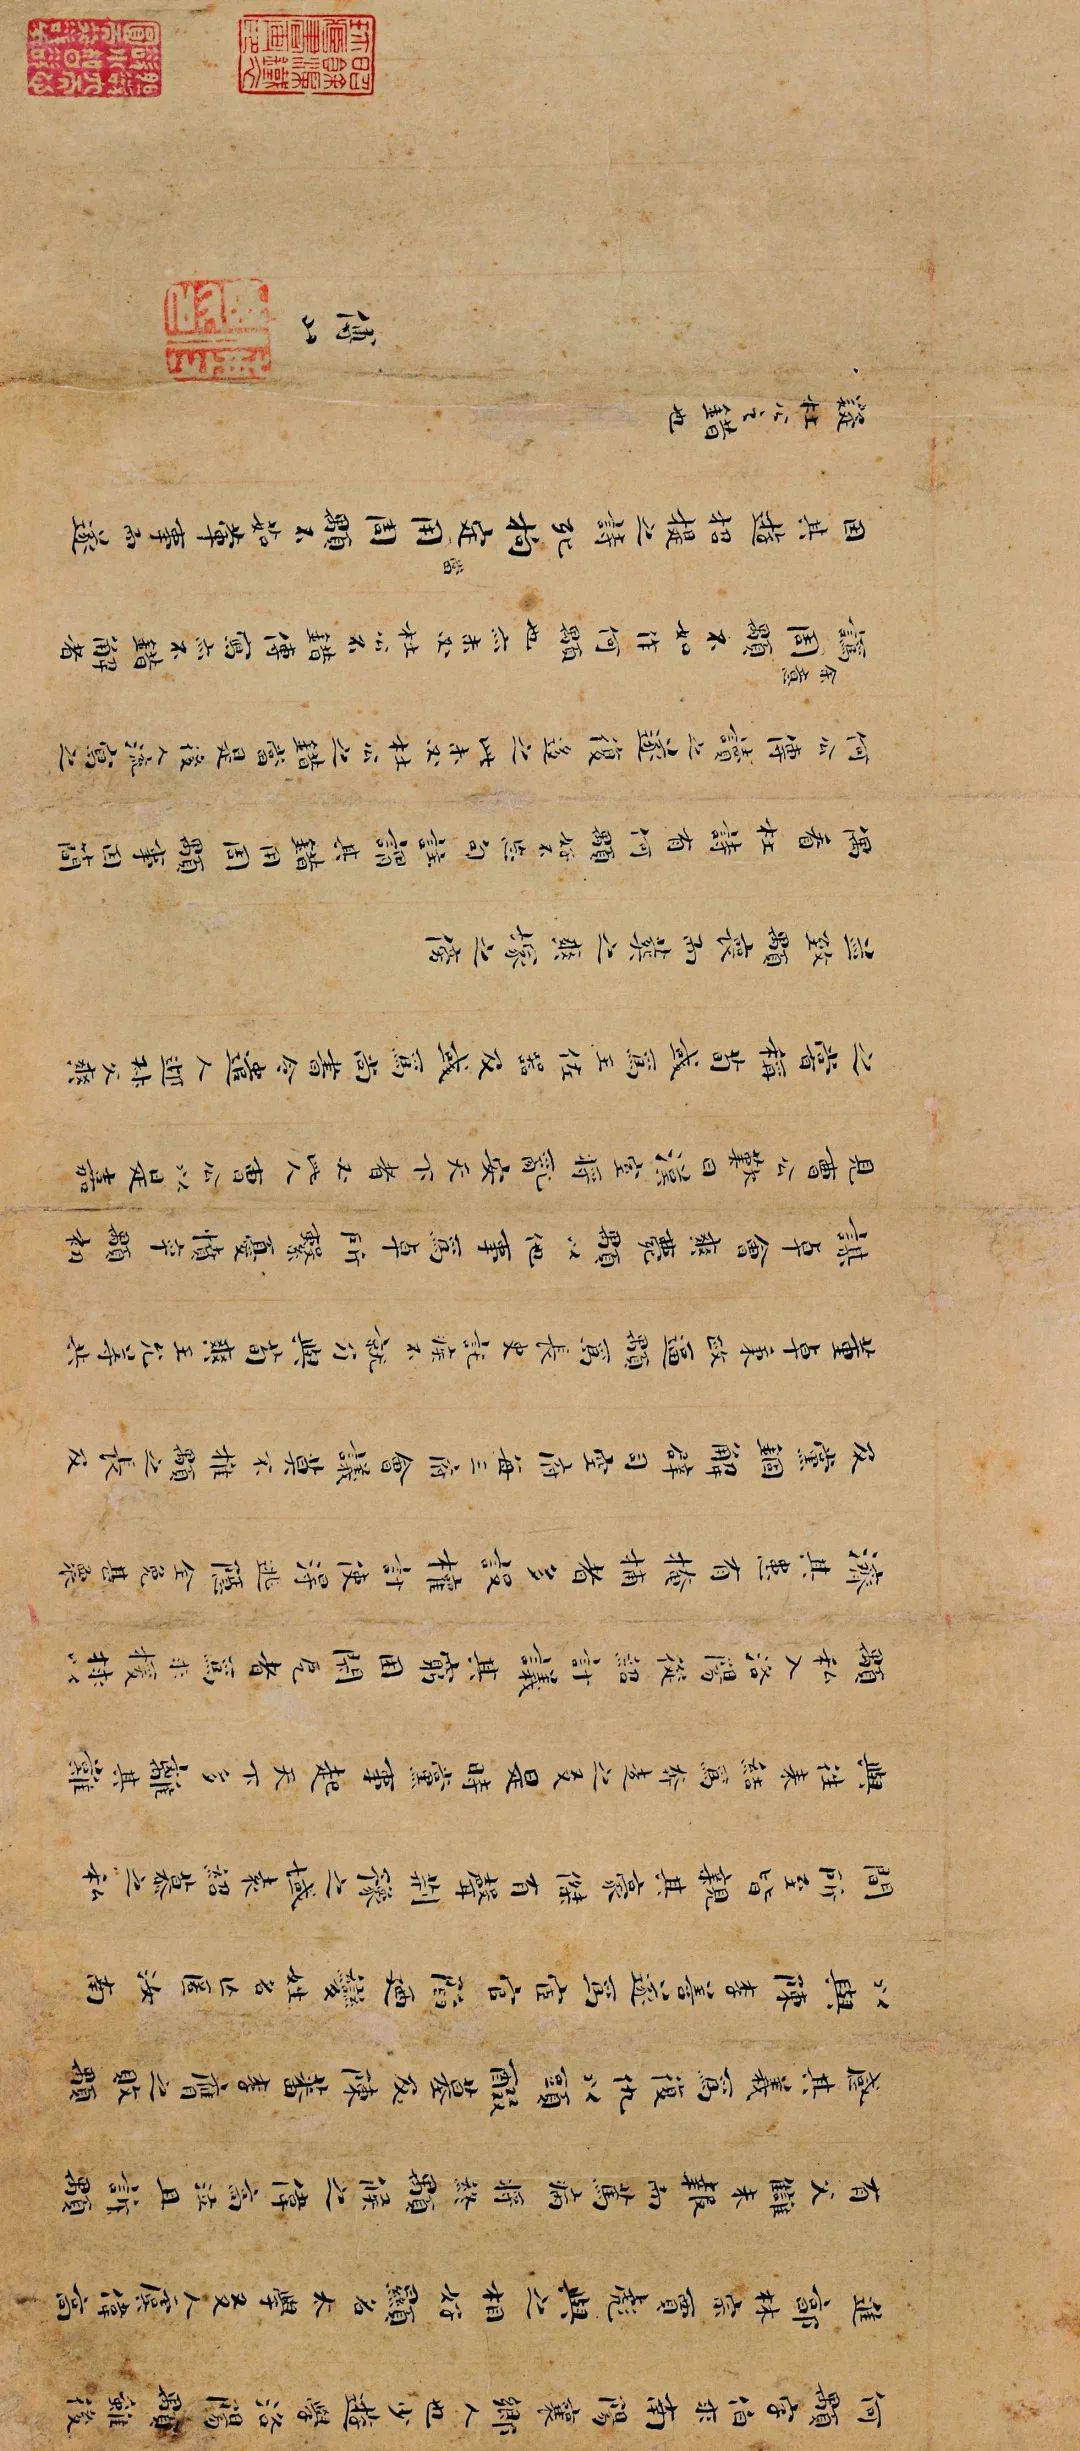 何顒字伯求南陽襄鄉人也少遊學洛陽顒雖後
進郭林宗賈彪與之相好顯名太學友人虞偉高
有父讎未報而篤病將終顒候之偉高泣且訴顒
感其義爲復仇以頭醊墓及陳蕃李膺之敗顒
以與陳李善遂爲宦官陷迺變姓名亡匿汝南
間所至皆親其豪傑有聲荊豫之域袁紹慕之私
與往來結爲奔走之友是時黨事起天下多離其難
顒私入洛陽從紹計議其窮困閉厄者爲求援救以
濟其患有掩捕者多設權計使得逃隱全免甚衆
及黨錮解辟司空府每三府會議莫不推顒之長及
董卓秉政逼顒爲長史託疾不就乃與荀爽王允等共
謀卓會爽薨顒以他事爲卓所繫憂憤卒顒初
見曹公歎曰漢室將亂安天下者必此人曹公以是嘉
之嘗稱荀彧爲王佐器及彧爲尚書令遣人迎叔父爽
並致顒喪而葬之爽塚之傍
偶看杜詩有何顒好不忘句註謂其錯用周顒事因簡
何公傳讀之遂復迻之此未必杜公之錯當是後人流寫之
余意
譌周顒不知作何顒也亦未必杜公不錯傳寫亦不錯解者
當
因其遊招提之詩死拘定用周顒不如葷事而遂
疑杜公之錯也
傅山